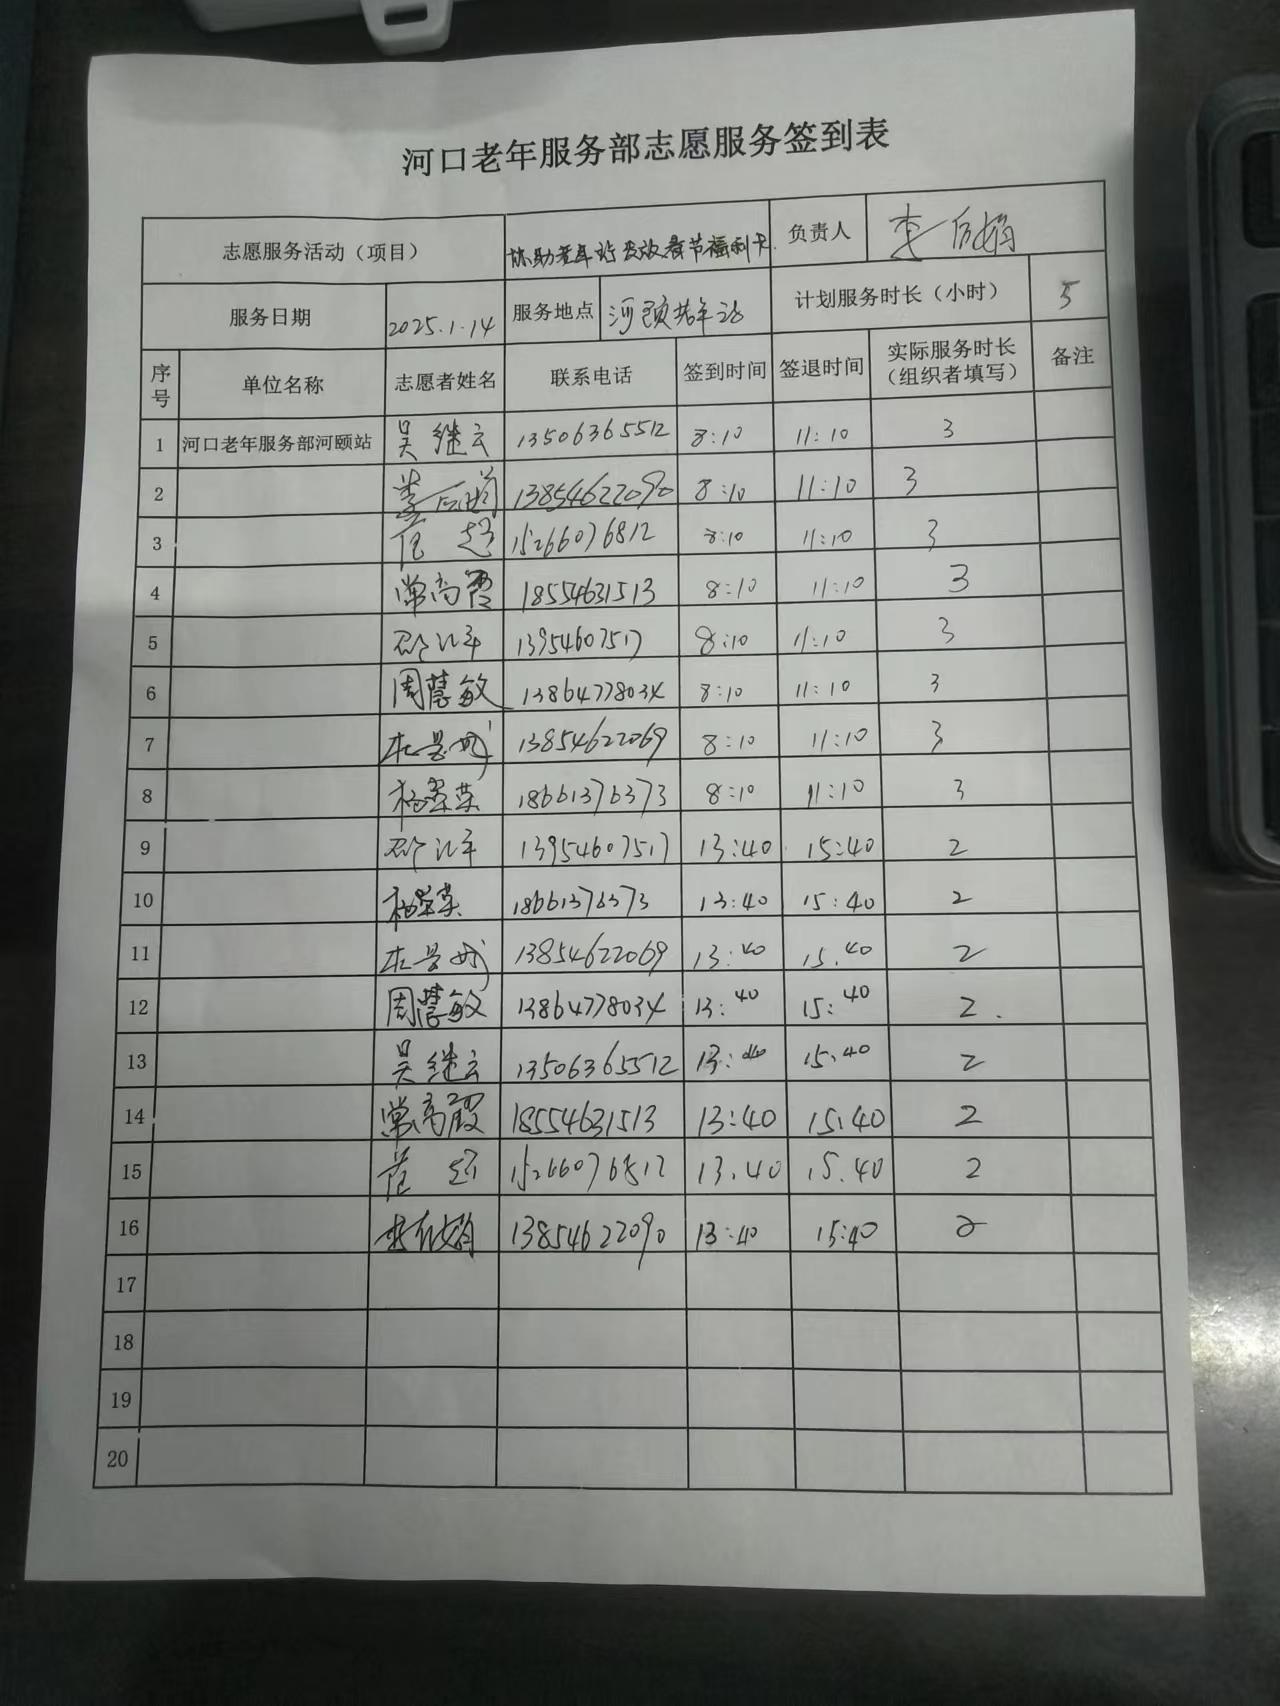 河口老年服务部志愿服务签到表
志愿服务活动（项目） 协助老年站发放春节福利卡 负责人 李
服务日期 2025.1.14 服务地点 河颐老年站 计划服务时长（小时） 5
序号 单位名称 志愿者姓名 联系电话 签到时间 签退时间 实际服务时长（组织者填写） 备注
1 河口老年服务部河颐站 吴继云 13506365512 8:10 11:10 3
2 13854622090 8:10 11:10 3
3 15266076812 8:10 11:10 3
4 常高霞 18554631513 8:10 11:10 3
5 13954607517 8:10 11:10 3
6 周慧敏 13864778034 8:10 11:10 3
7 13854622069 8:10 11:10 3
8 杨翠荣 18661376373 8:10 11:10 3
9 13954607517 13:40 15:40 2
10 杨翠荣 18661376373 13:40 15:40 2
11 13854622069 13:40 15.40 2
12 周慧敏 13864778034 13:40 15:40 2.
13 吴继云 13506365512 13:40 15.40 2
14 常高霞 18554631513 13:40 15.40 2
15 15266076812 13.40 15.40 2
16 13854622090 13:40 15:40 2
17
18
19
20